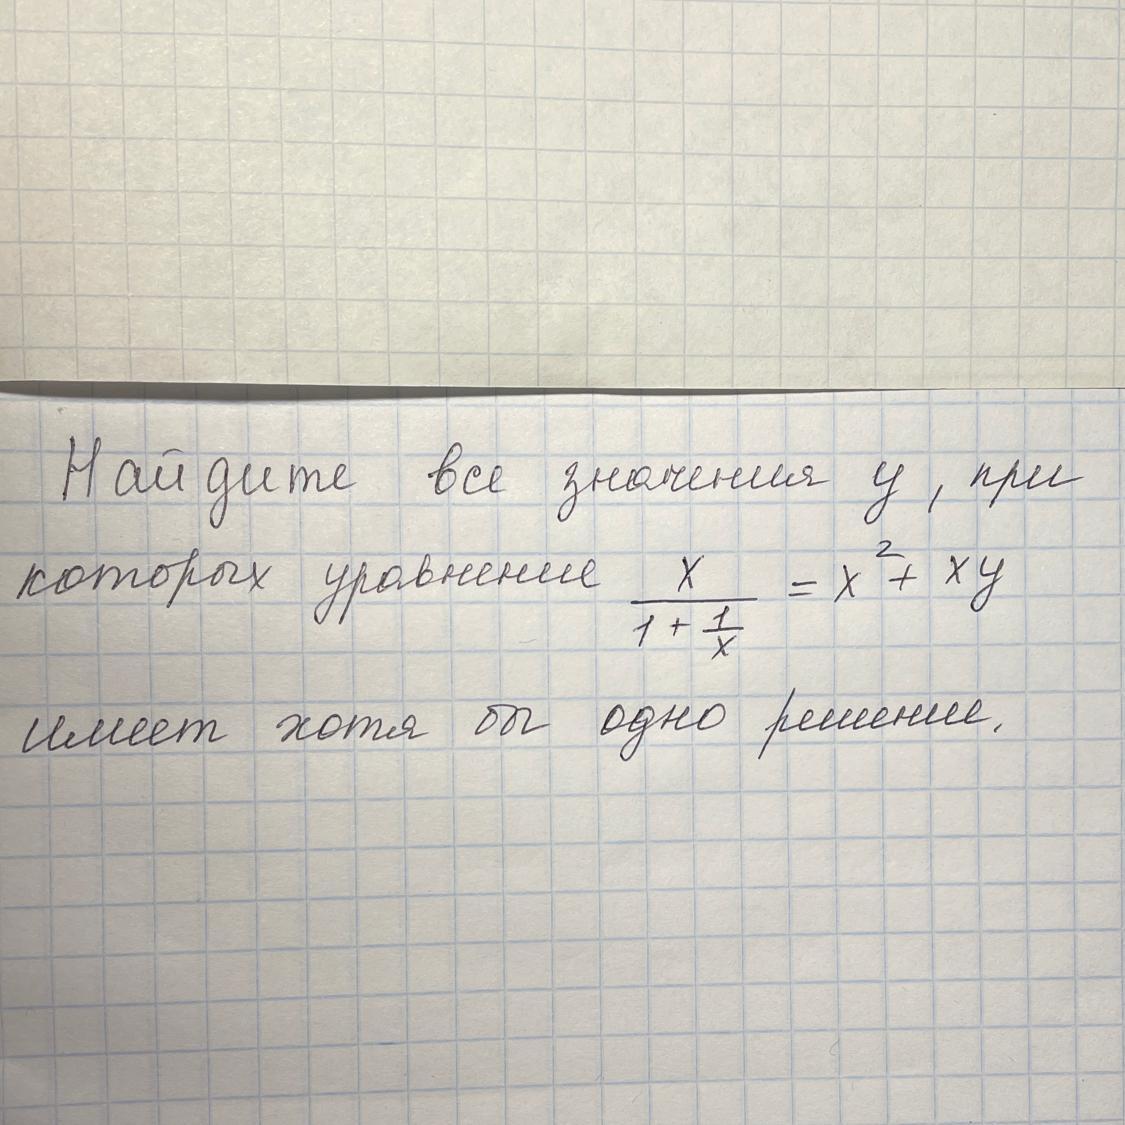 Найдите все значения y, при
которых уравнение \frac{x}{1+\frac{1}{x}} = x^2 + xy
имеет хотя бы одно решение.